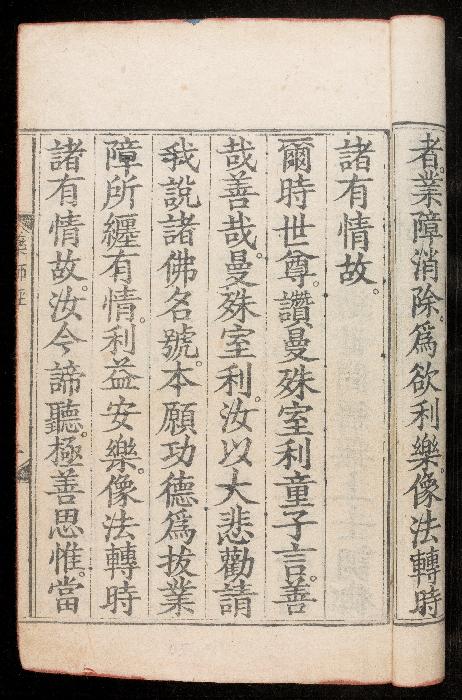 者業障消除。爲欲利樂。像法轉時
諸有情故。
爾時世尊。讚曼殊室利童子言。善
哉善哉。曼殊室利。汝以大悲勸請
我說諸佛名號。本願功德。爲拔業
障所纏有情。利益安樂。像法轉時
諸有情故。汝今諦聽。極善思惟。當
藥師經